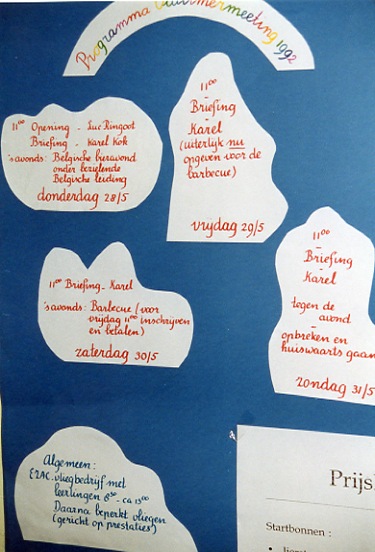 Programma Cuulmermeeting 1992
11⁰⁰ Opening - Luc Ringoot
Briefing - Karel Kok
's avonds: Belgische bieravond
onder bezielende
Belgische leiding
donderdag 28/5
11⁰⁰
-
Briefing
-
Karel
(uiterlijk nu
opgeven voor de
barbecue)
vrijdag 29/5
11⁰⁰ Briefing - Karel
's avonds: Barbecue (voor
vrijdag 11⁰⁰ inschrijven
en betalen)
zaterdag 30/5
11⁰⁰
-
Briefing
-
Karel
tegen de
avond
-
opbreken en
huiswaarts gaan
zondag 31/5
Algemeen:
EZAC-vliegbedrijf met
leerlingen 8³⁰ - ca 13⁰⁰
Daarna beperkt vliegen
(gericht op prestaties)
Prijs
Startbonnen :